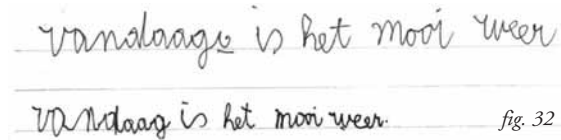 vandaage is het mooi weer
vandaag is het mooi weer.
fig. 32